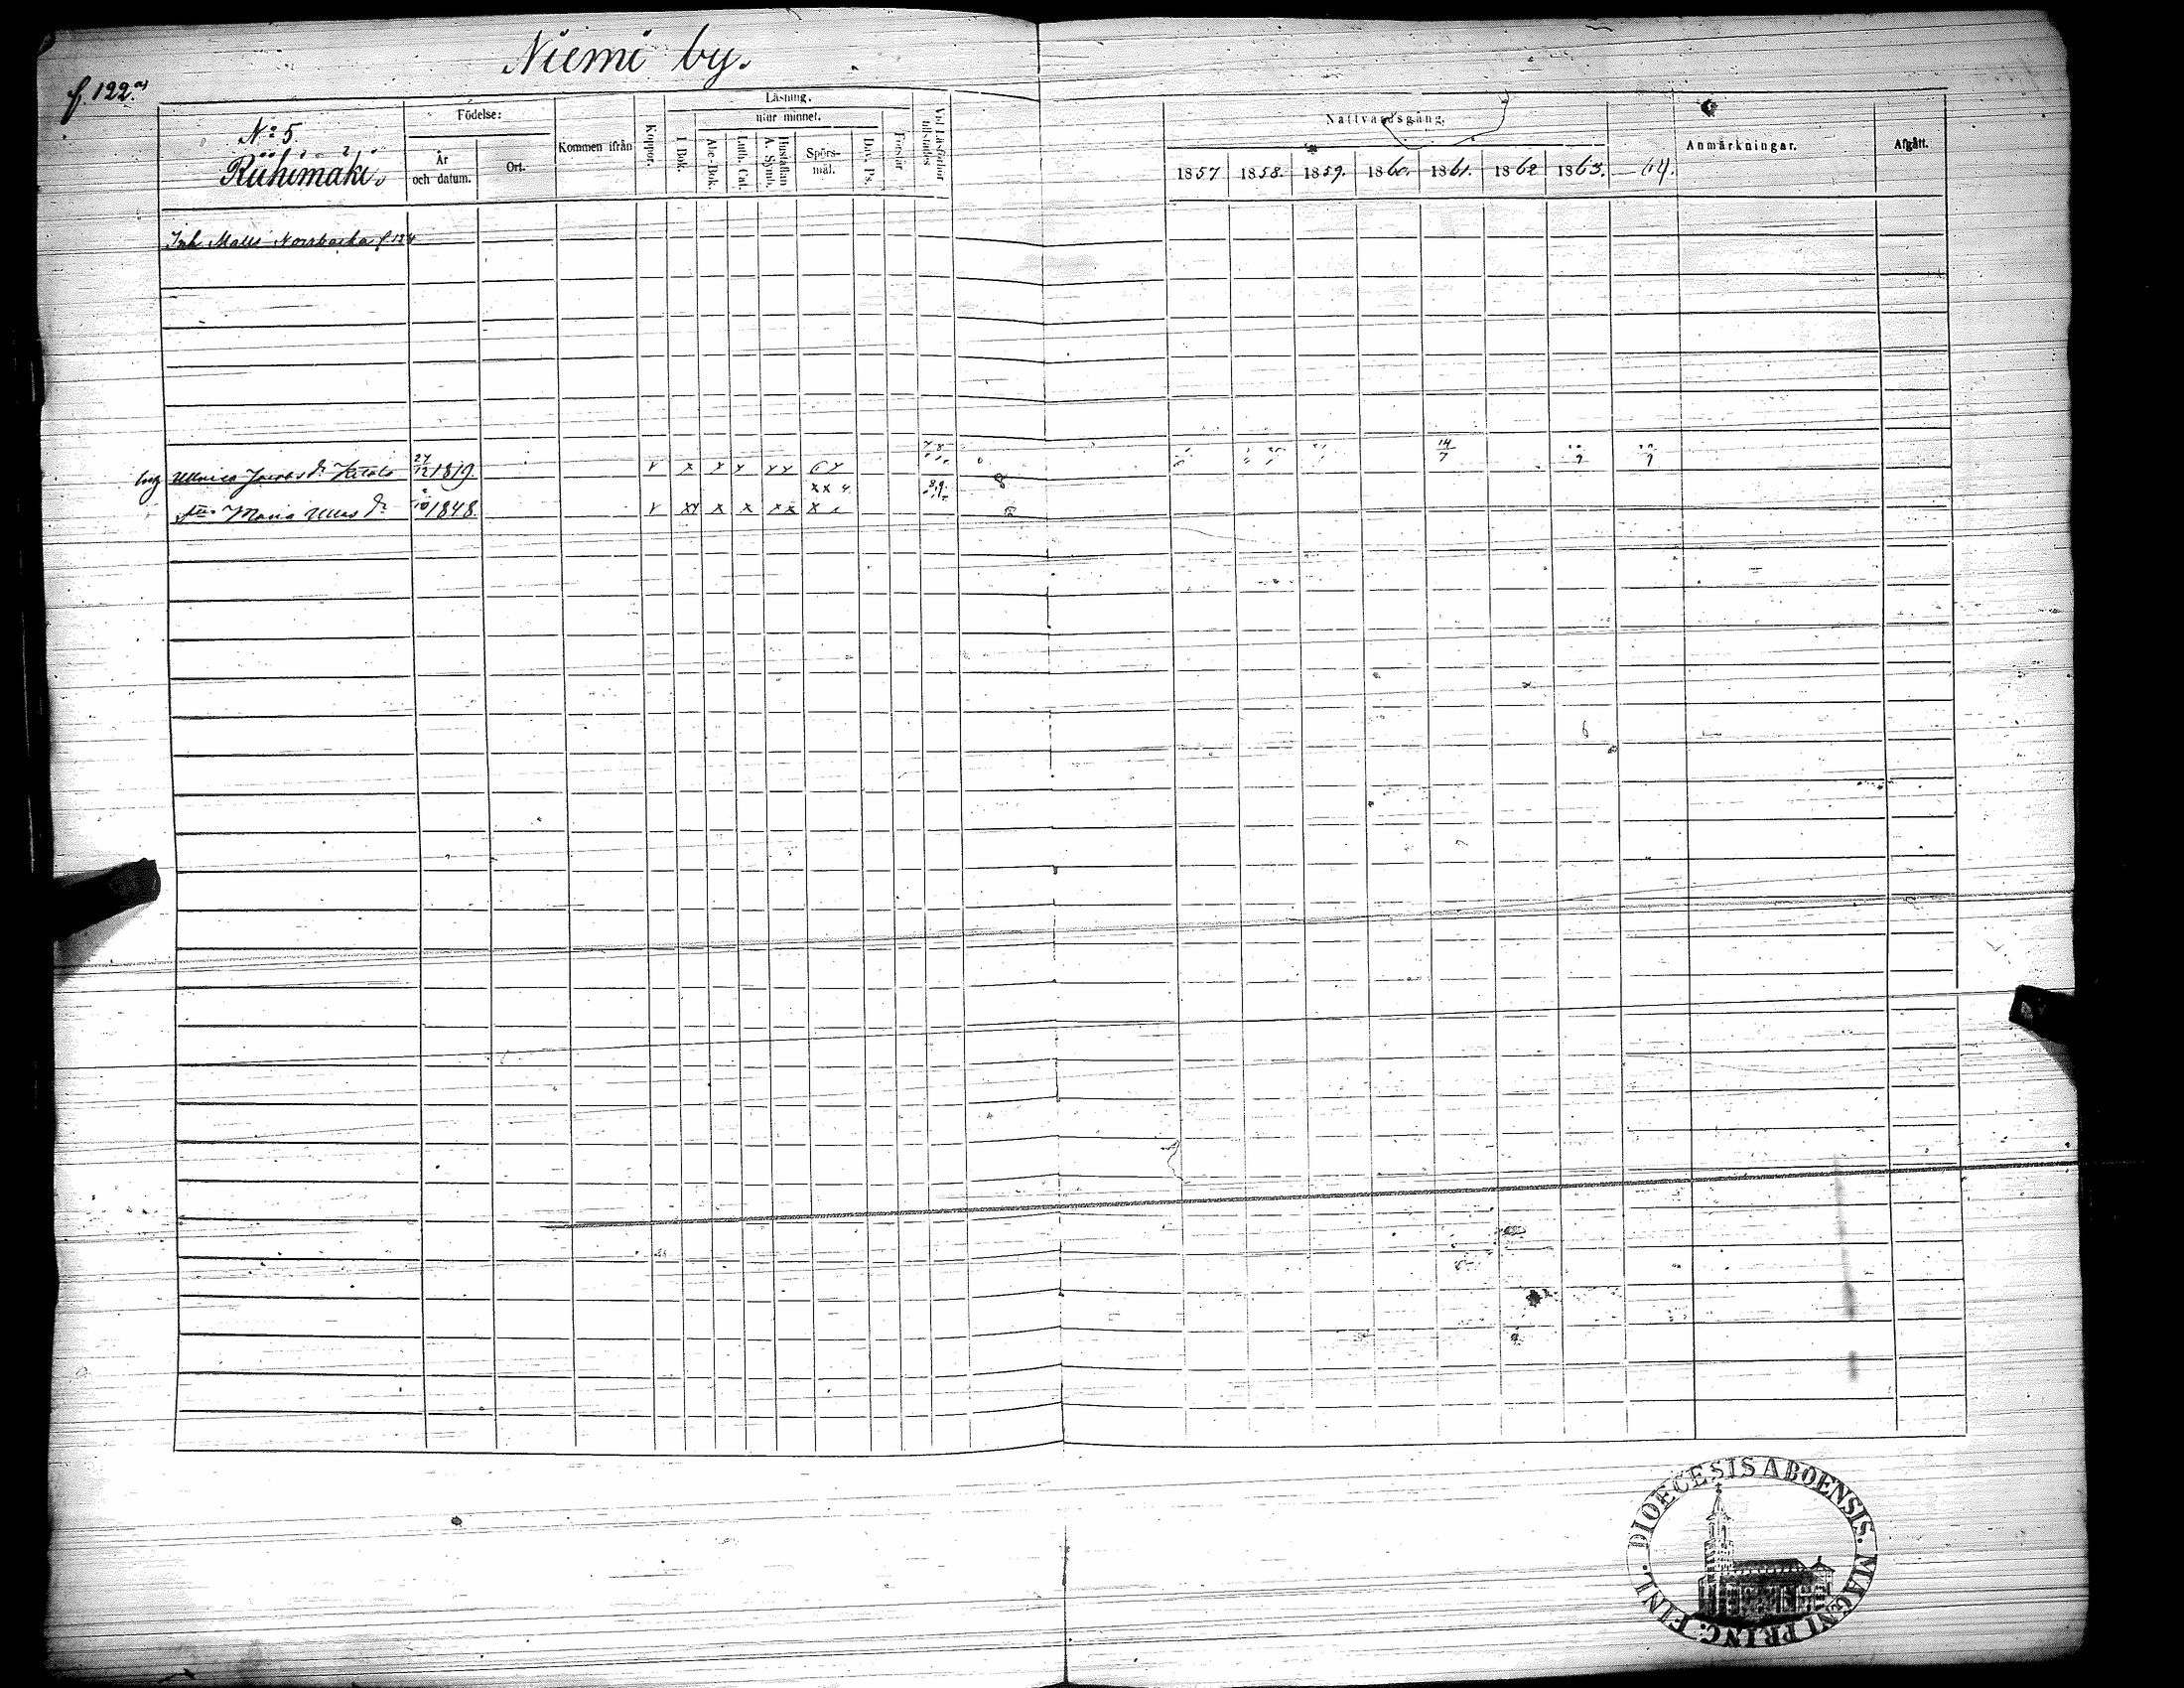 Niemi by.
f. 122.a)
No 5.
Riihimäki.
Födelse:
År
och datum.
Ort.
Kommen ifrån
Koppor.
Läsning.
I Bok.
utur minnet.
Abc-Bok.
Luth. Cat.
Hustaflan
A. Symb.
Spörs-
mål.
Dav. Ps.
Förstår
Vid Läsförhör
tillstädes
Nattvardsgång.
1857 1858. 1859. 1860. 1861. 1862 1863. 64.
Anmärkningar.
Afgått.
Inh Matts Norrbacka f. 124
Ulrica Jacobs dr Ketola 27/12 1819. 14/7
Maria Ullas dr 1848.
DIOECESIS ABOENSIS. MAGNI PRINC. FINL.